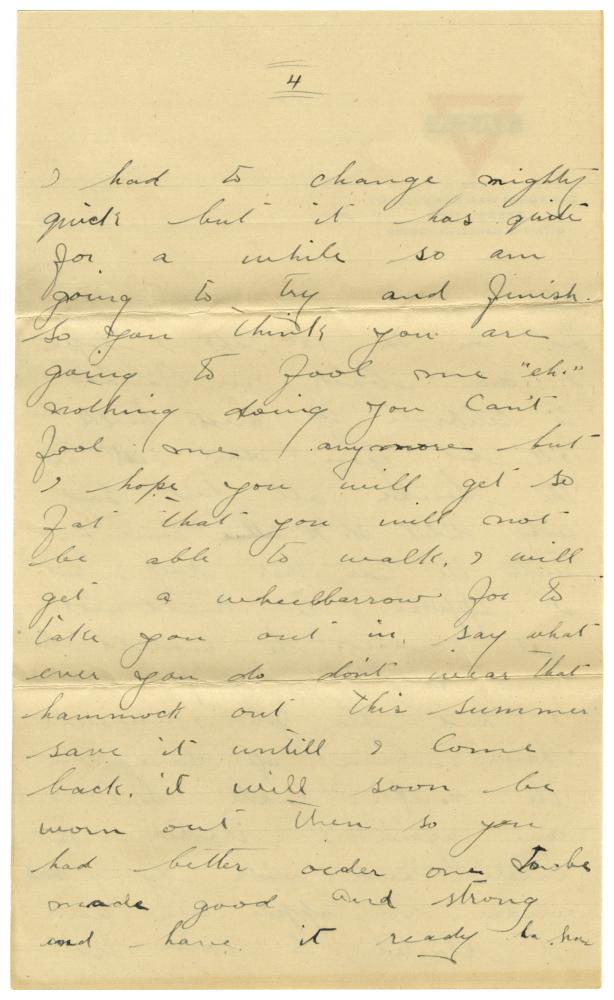 4
I had to change mighty
quick but it has quite
for a while so am
going to try and finish.
So you think you are
going to fool me "eh."
nothing doing you can't
fool me anymore but
I hope you will get so
fat that you will not
be able to walk. I will
get a wheelbarrow for to
take you out in. say what
ever you do don't wear that
hammock out this summer
save it untill I come
back. it will soon be
worn out then so you
had better order one to be
made good and strong
and have it ready